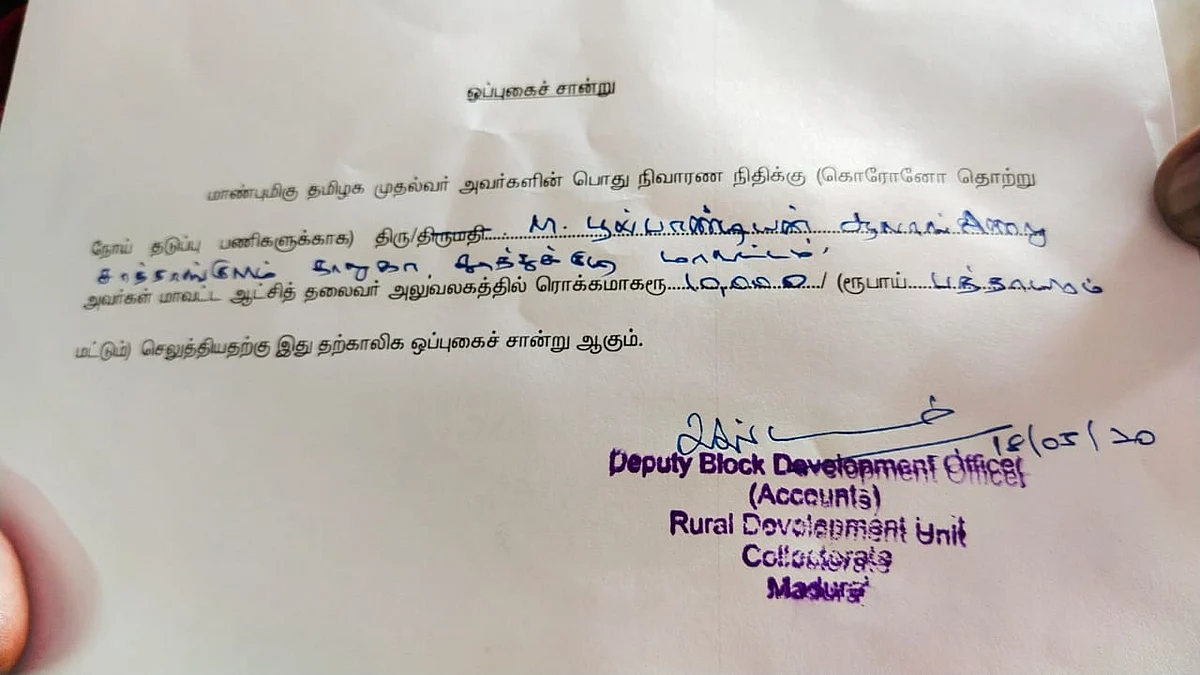 ஒப்புகைச் சான்று
மாண்புமிகு தமிழக முதல்வர் அவர்களின் பொது நிவாரண நிதிக்கு (கொரோனோ தொற்று
நோய் தடுப்பு பணிகளுக்காக) திரு/திருமதி..... M. பூல்பாண்டியன்
சாத்தான்குளம் தாலுகா, தூத்துக்குடி மாவட்டம்,
அவர்கள் மாவட்ட ஆட்சித் தலைவர் அலுவலகத்தில் ரொக்கமாகரூ....10,000.../ (ரூபாய்.....பத்தாயிரம்
மட்டும்) செலுத்தியதற்கு இது தற்காலிக ஒப்புகைச் சான்று ஆகும்.
18/05/20
Deputy Block Development Officer
(Accounts)
Rural Development Unit
Collectorate
Madurai